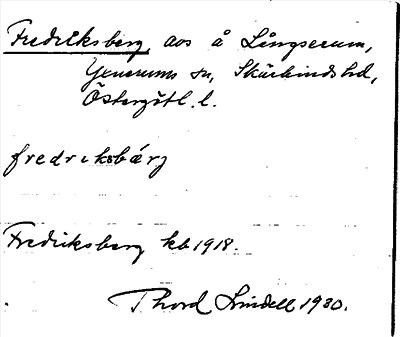 Fredriksberg, aos å Långserum,
Yxnerums sn, Skärkinds hd,
Östergötl. l.
fredriksbärj
Fredriksberg kb 1918.
Thord Lindell 1930.